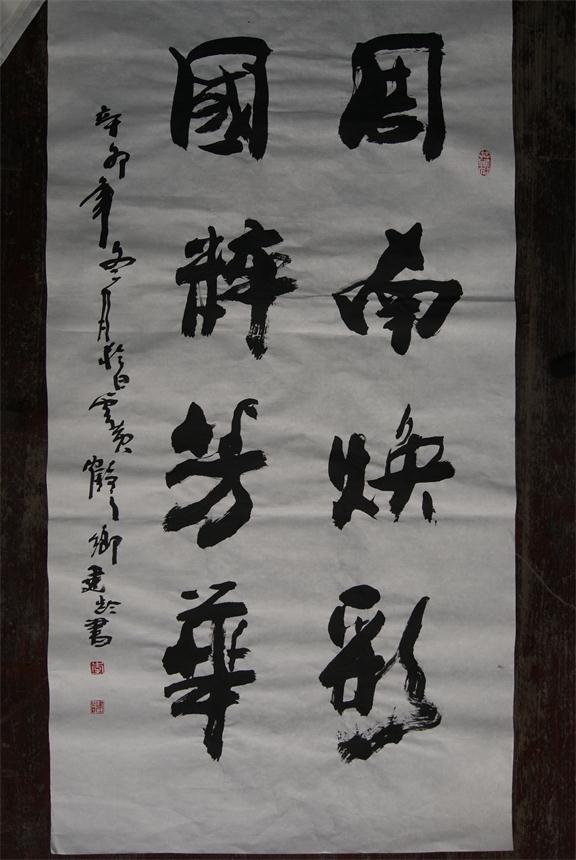 周南焕彩
國粹芳華
辛卯年冬月於白雲黄鶴之鄉建齡書